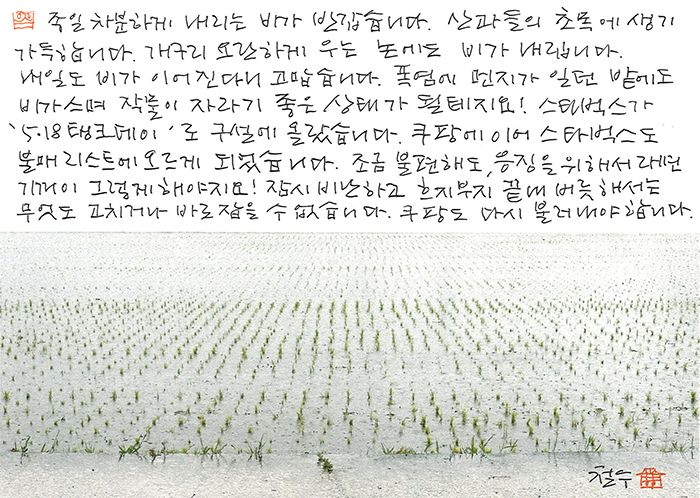 죽일 차분하게 내리는 비가 반갑습니다. 산과들의 초목에 생기
가득합니다. 개구리 요란하게 우는 논에도 비가 내립니다.
내일도 비가 이어진다니 고맙습니다. 폭염에 먼지가 일던 밭에도
비가스며 작물이 자라기 좋은 상태가 될테지요! 스타벅스가
'5.18탱크데이'로 구설에 올랐습니다. 쿠팡에이어 스타벅스도
불매 리스트에 오르게 되었습니다. 조금 불편해도, 응징을 위해서라면
기꺼이 그렇게 해야지요! 잠시 비난하고 흐지부지 끝내 버릇해서는
무엇도 고치거나 바로잡을 수 없습니다. 쿠팡도 다시 불러내야 합니다.
철수